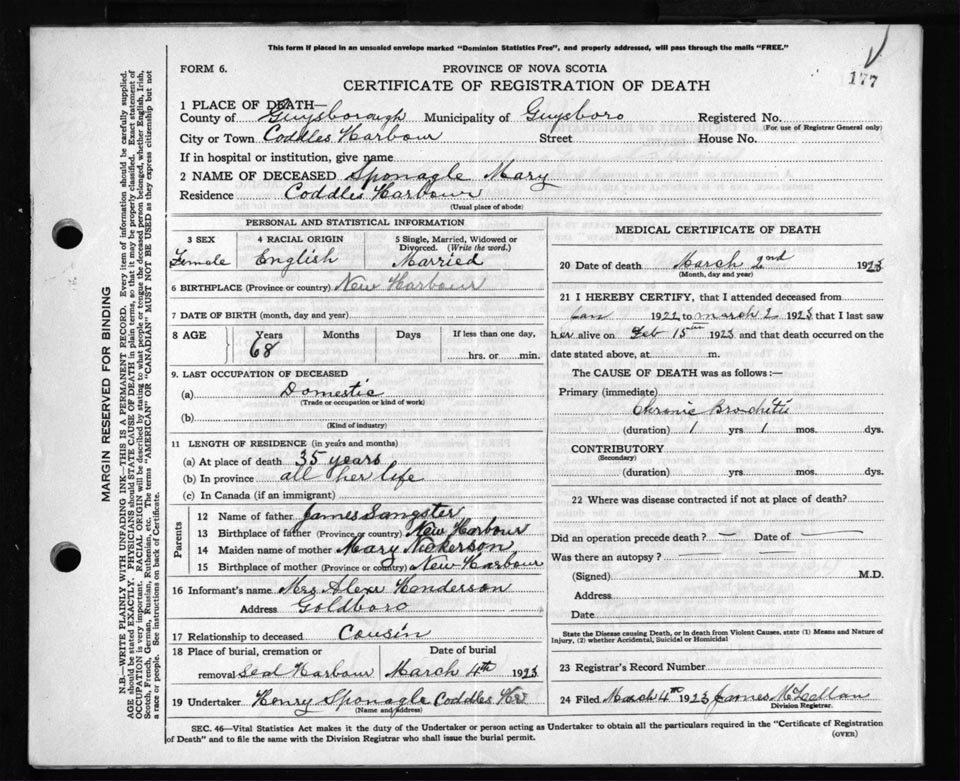 This form if placed in an unsealed envelope marked "Dominion Statistics Free", and properly addressed, will pass through the mails "FREE."
177
FORM 6.
PROVINCE OF NOVA SCOTIA
CERTIFICATE OF REGISTRATION OF DEATH
1 PLACE OF DEATH—
County of Guysborough Municipality of Guysboro Registered No.
(For use of Registrar General only)
City or Town Coddles Harbour Street House No.
If in hospital or institution, give name
2 NAME OF DECEASED Sponagle Mary
Residence Coddles Harbour
(Usual place of abode)
PERSONAL AND STATISTICAL INFORMATION
3 SEX 4 RACIAL ORIGIN 5 Single, Married, Widowed or Divorced. (Write the word.)
Female English Married
6 BIRTHPLACE (Province or country) New Harbour
7 DATE OF BIRTH (month, day and year)
8 AGE Years Months Days If less than one day,
68 hrs. or min.
9. LAST OCCUPATION OF DECEASED
(a) Domestic
(Trade or occupation or kind of work)
(b)
(Kind of industry)
11 LENGTH OF RESIDENCE (in years and months)
(a) At place of death 35 years
(b) In province all her life
(c) In Canada (if an immigrant)
Parents
12 Name of father James Sangster
13 Birthplace of father (Province or country) New Harbour
14 Maiden name of mother Mary Nickerson
15 Birthplace of mother (Province or country) New Harbour
16 Informant's name Mrs Alex Henderson
Address Goldboro
17 Relationship to deceased Cousin
18 Place of burial, cremation or Date of burial
removal Seal Harbour March 4th 1923
19 Undertaker Henry Sponagle Coddles Hr
(Name and address)
MEDICAL CERTIFICATE OF DEATH
20 Date of death March 2nd 1923
(Month, day and year)
21 I HEREBY CERTIFY, that I attended deceased from
Jan 1922 to March 2 1923 that I last saw
her alive on Feb 15th 1923 and that death occurred on the
date stated above, at m.
The CAUSE OF DEATH was as follows:—
Primary (immediate)
Chronic Bronchitis
(duration) 1 yrs 1 mos. dys.
CONTRIBUTORY
(Secondary)
(duration) yrs. mos. dys.
22 Where was disease contracted if not at place of death?
Did an operation precede death? — Date of —
Was there an autopsy? —
(Signed) M.D.
Address
Date
State the Disease causing Death, or in death from Violent Causes, state (1) Means and Nature of
Injury, (2) whether Accidental, Suicidal or Homicidal
23 Registrar's Record Number
24 Filed March 4th 1923 James McLellan
Division Registrar.
SEC. 46—Vital Statistics Act makes it the duty of the Undertaker or person acting as Undertaker to obtain all the particulars required in the "Certificate of Registration
of Death" and to file the same with the Division Registrar who shall issue the burial permit.
(OVER)
MARGIN RESERVED FOR BINDING
N.B.—WRITE PLAINLY WITH UNFADING INK—THIS IS A PERMANENT RECORD. Every item of information should be carefully supplied.
AGE should be stated EXACTLY. PHYSICIANS should STATE CAUSE OF DEATH in plain terms, so that it may be properly classified. Exact statement of
OCCUPATION is very important. RACIAL ORIGIN will be described by stating to what people or tongue the deceased person belonged, whether English, Irish,
Scotch, French, German, Russian, Ruthenian, etc. The terms "AMERICAN" OR "CANADIAN" MUST NOT BE USED as they express citizenship but not
a race or people. See instructions on back of Certificate.